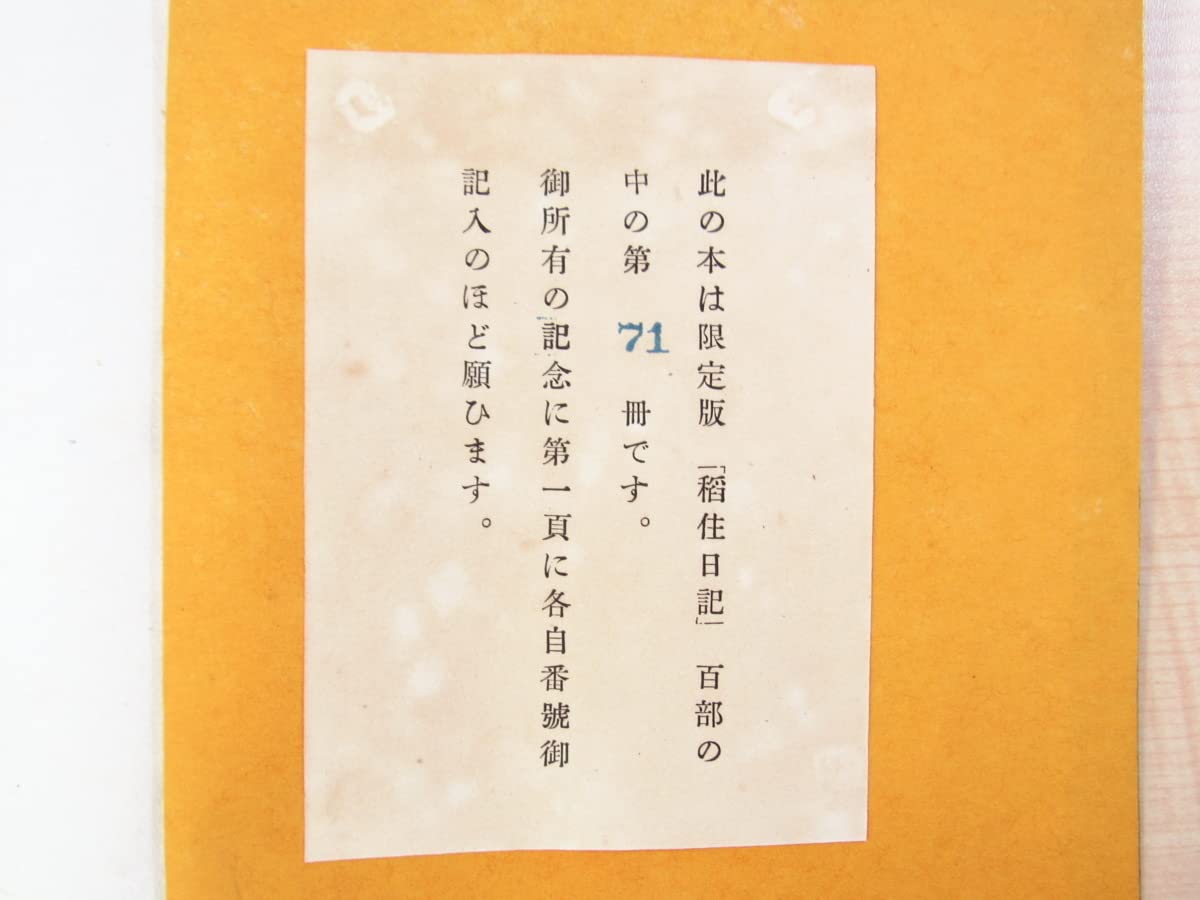 此の本は限定版 「稻住日記」 百部の
中の第 71 冊です。
御所有の記念に第一頁に各自番號御
記入のほど願ひます。